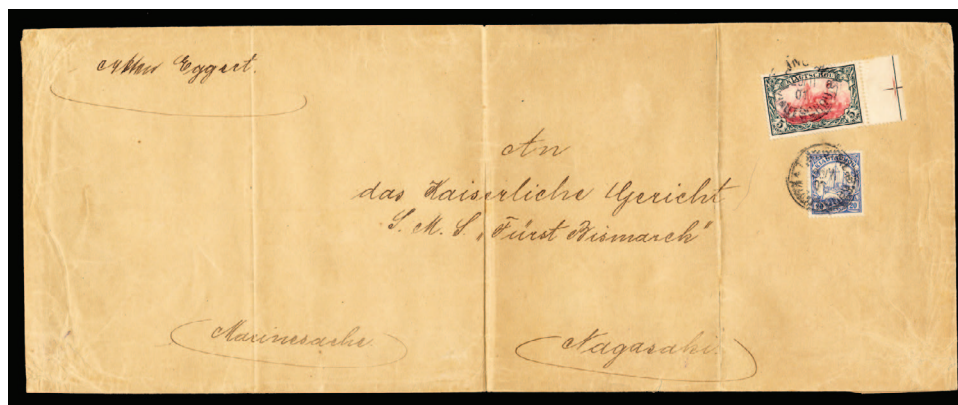 Akten Eggert.
KIAUTSCHOU
5 5
An
das Kaiserliche Gericht
S. M. S. „Fürst Bismarck"
Marinesache
Nagasaki.